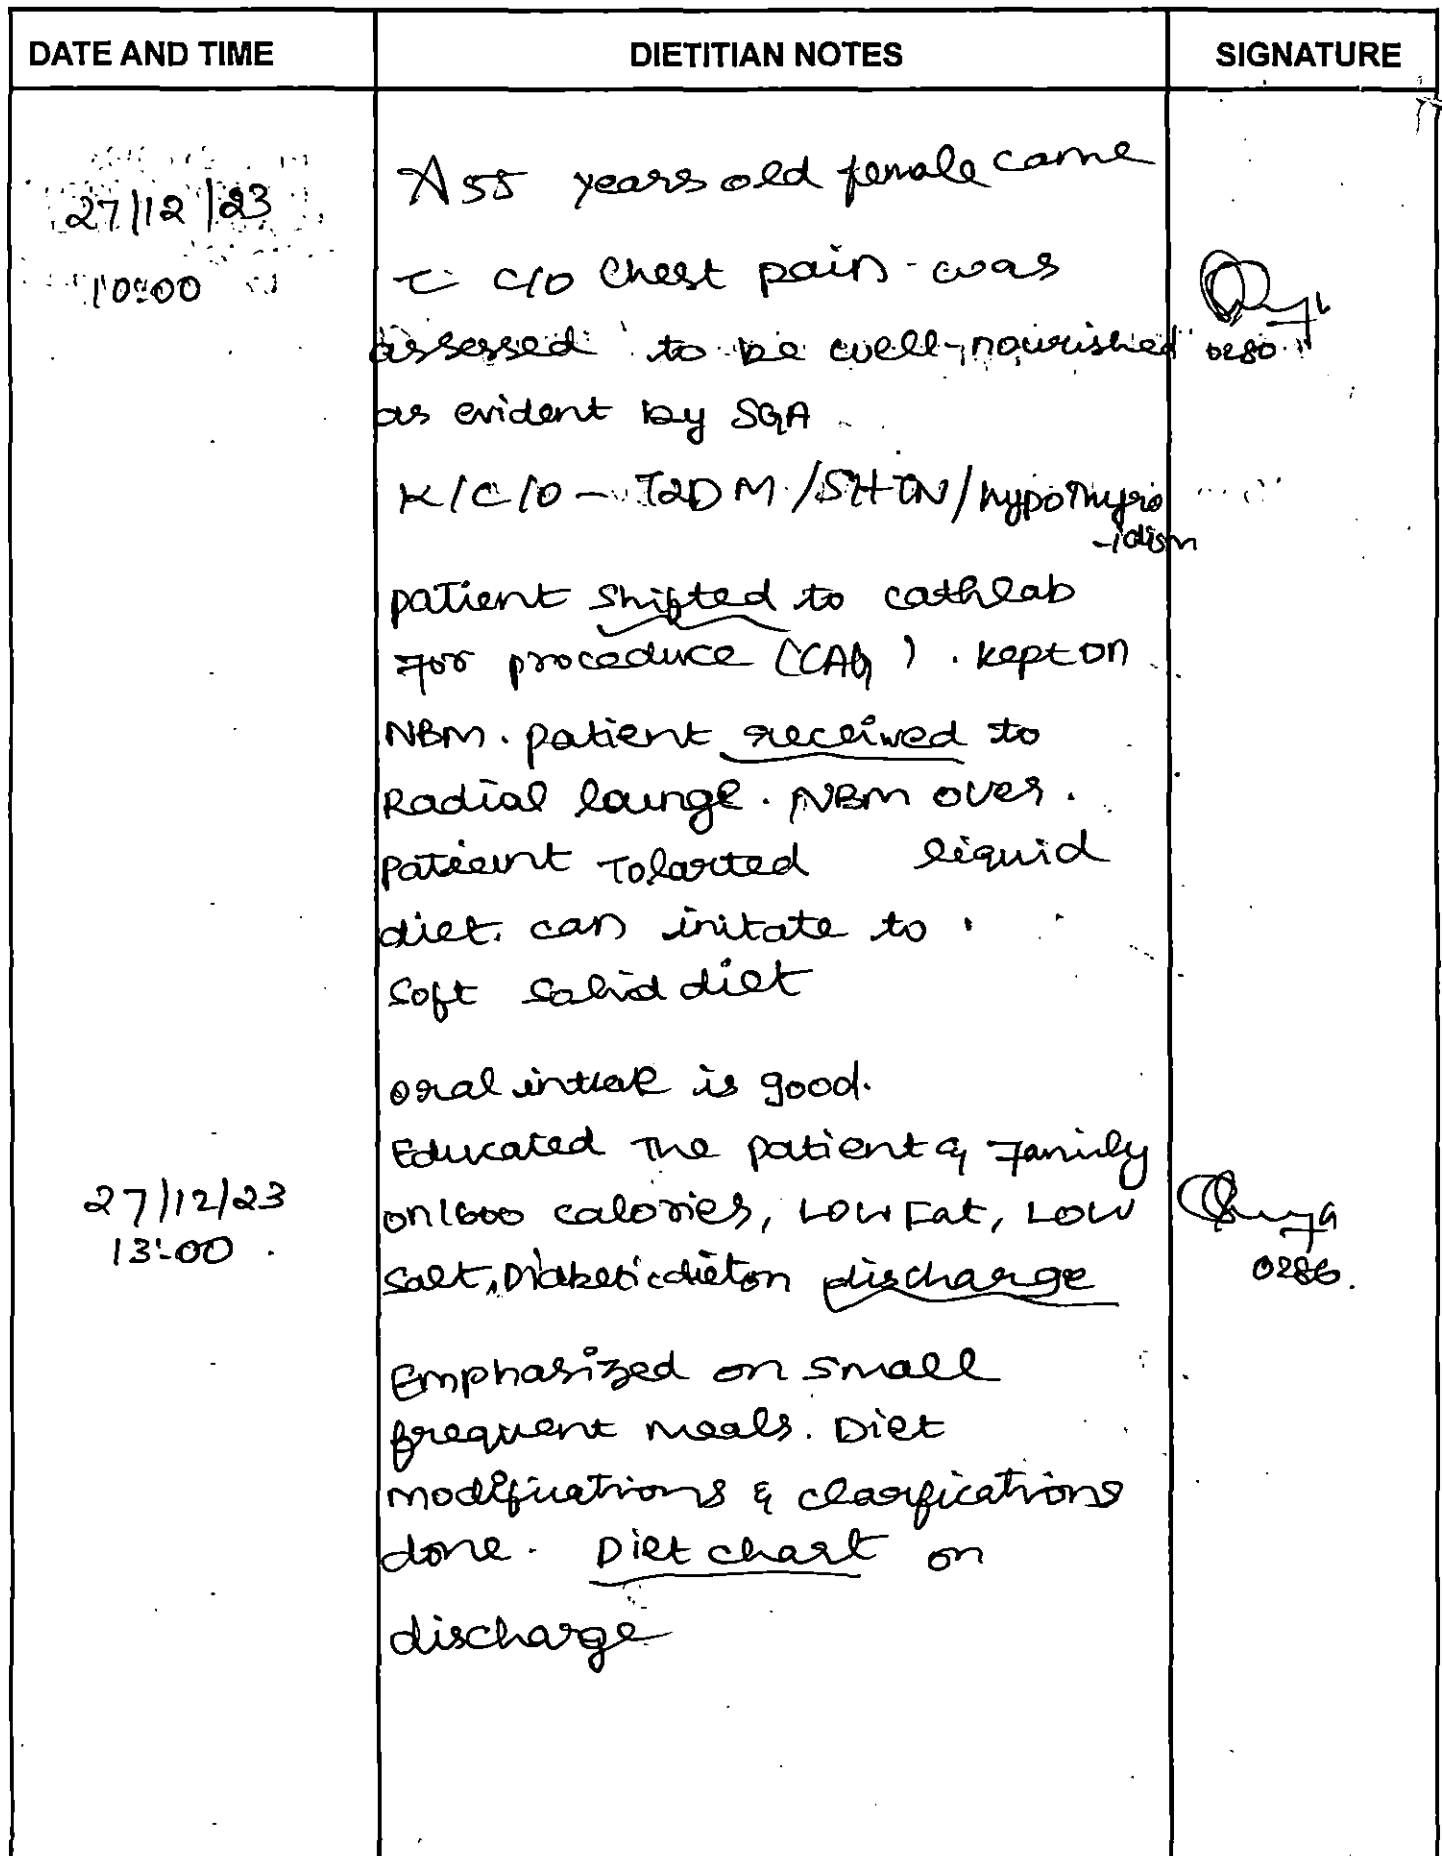 DATE AND TIME DIETITIAN NOTES SIGNATURE
27/12/23 A 55 years old female came
10:00 c̄ C/O Chest pain was
assessed to be well-nourished
as evident by SGA
K/C/O - T2DM / SHTN / hypothyro
-idism
patient shifted to cathlab
For procedure (CAG). kept on
NBM. patient received to
Radial lounge. NBM over.
Patieint Tolarted liquid
diet. can initate to
Soft Solid diet
oral intak is good.
Educated The patient & Family
27/12/23 on 1600 calories, LOW Fat, LOW
13:00 Salt, Diabetic diet on discharge
0286.
Emphasized on small
frequent meals. Diet
modifications & clarfications
done. Diet chart on
discharge